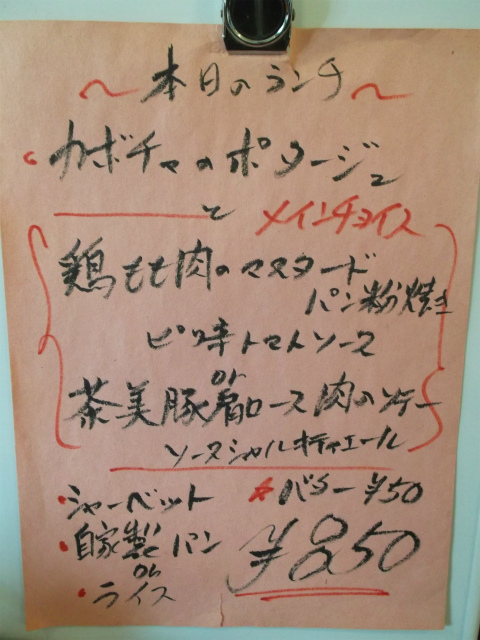 ~本日のランチ~
・カボチャのポタージュ
と メインチョイス
鶏もも肉のマスタード
パン粉焼き
ピリ辛トマトソース
or
茶美豚肩ロース肉のソテー
ソースシャルキティエール
・シャーベット ☆バター¥50
・自家製パン
or
・ライス
¥850